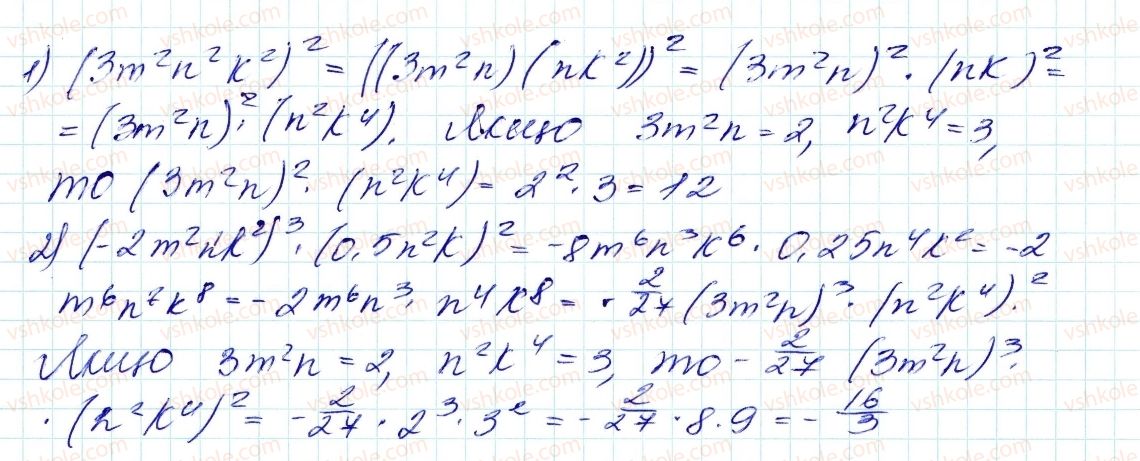 1) (3m²n²k²)² = ((3m²n)(nk²))² = (3m²n)² · (nk)² =
= (3m²n)² · (n²k⁴). Якщо 3m²n = 2, n²k⁴ = 3,
то (3m²n)² · (n²k⁴) = 2² · 3 = 12
2) (-2m²nk²)³ · (0,5n²k)² = -8m⁶n³k⁶ · 0,25n⁴k² = -2
m⁶n⁷k⁸ = -2m⁶n³ · n⁴k⁸ = -2/27 (3m²n)³ · (n²k⁴)².
Якщо 3m²n = 2, n²k⁴ = 3, то -2/27 (3m²n)³ ·
· (n²k⁴)² = -2/27 · 2³ · 3² = -2/27 · 8 · 9 = -16/3